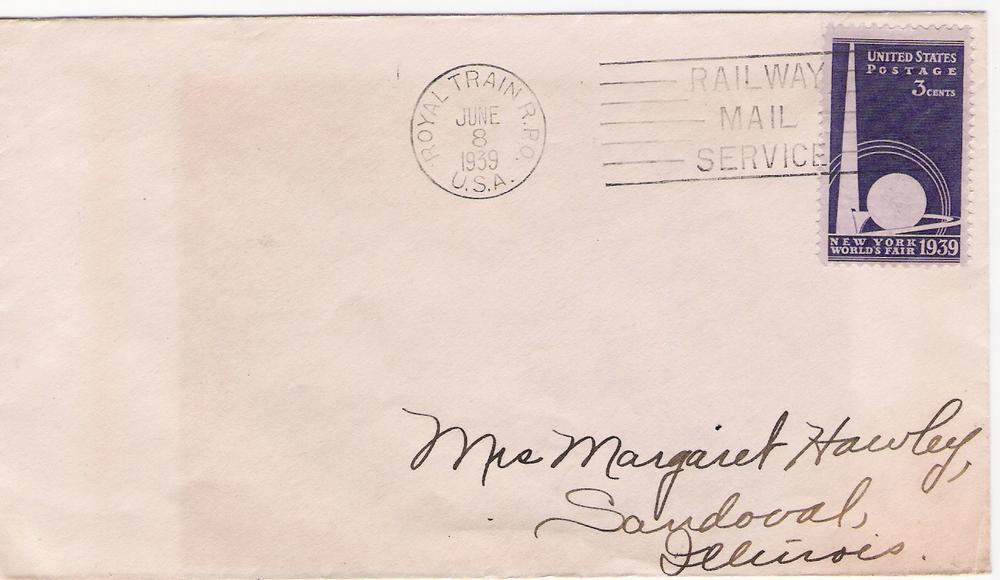 ROYAL TRAIN R.P.O.
JUNE
8
1939
U.S.A.
RAILWAY
MAIL
SERVICE
UNITED STATES
POSTAGE
3 CENTS
NEW YORK
WORLD'S FAIR 1939
Mrs Margaret Hawley,
Sandoval,
Illinois.